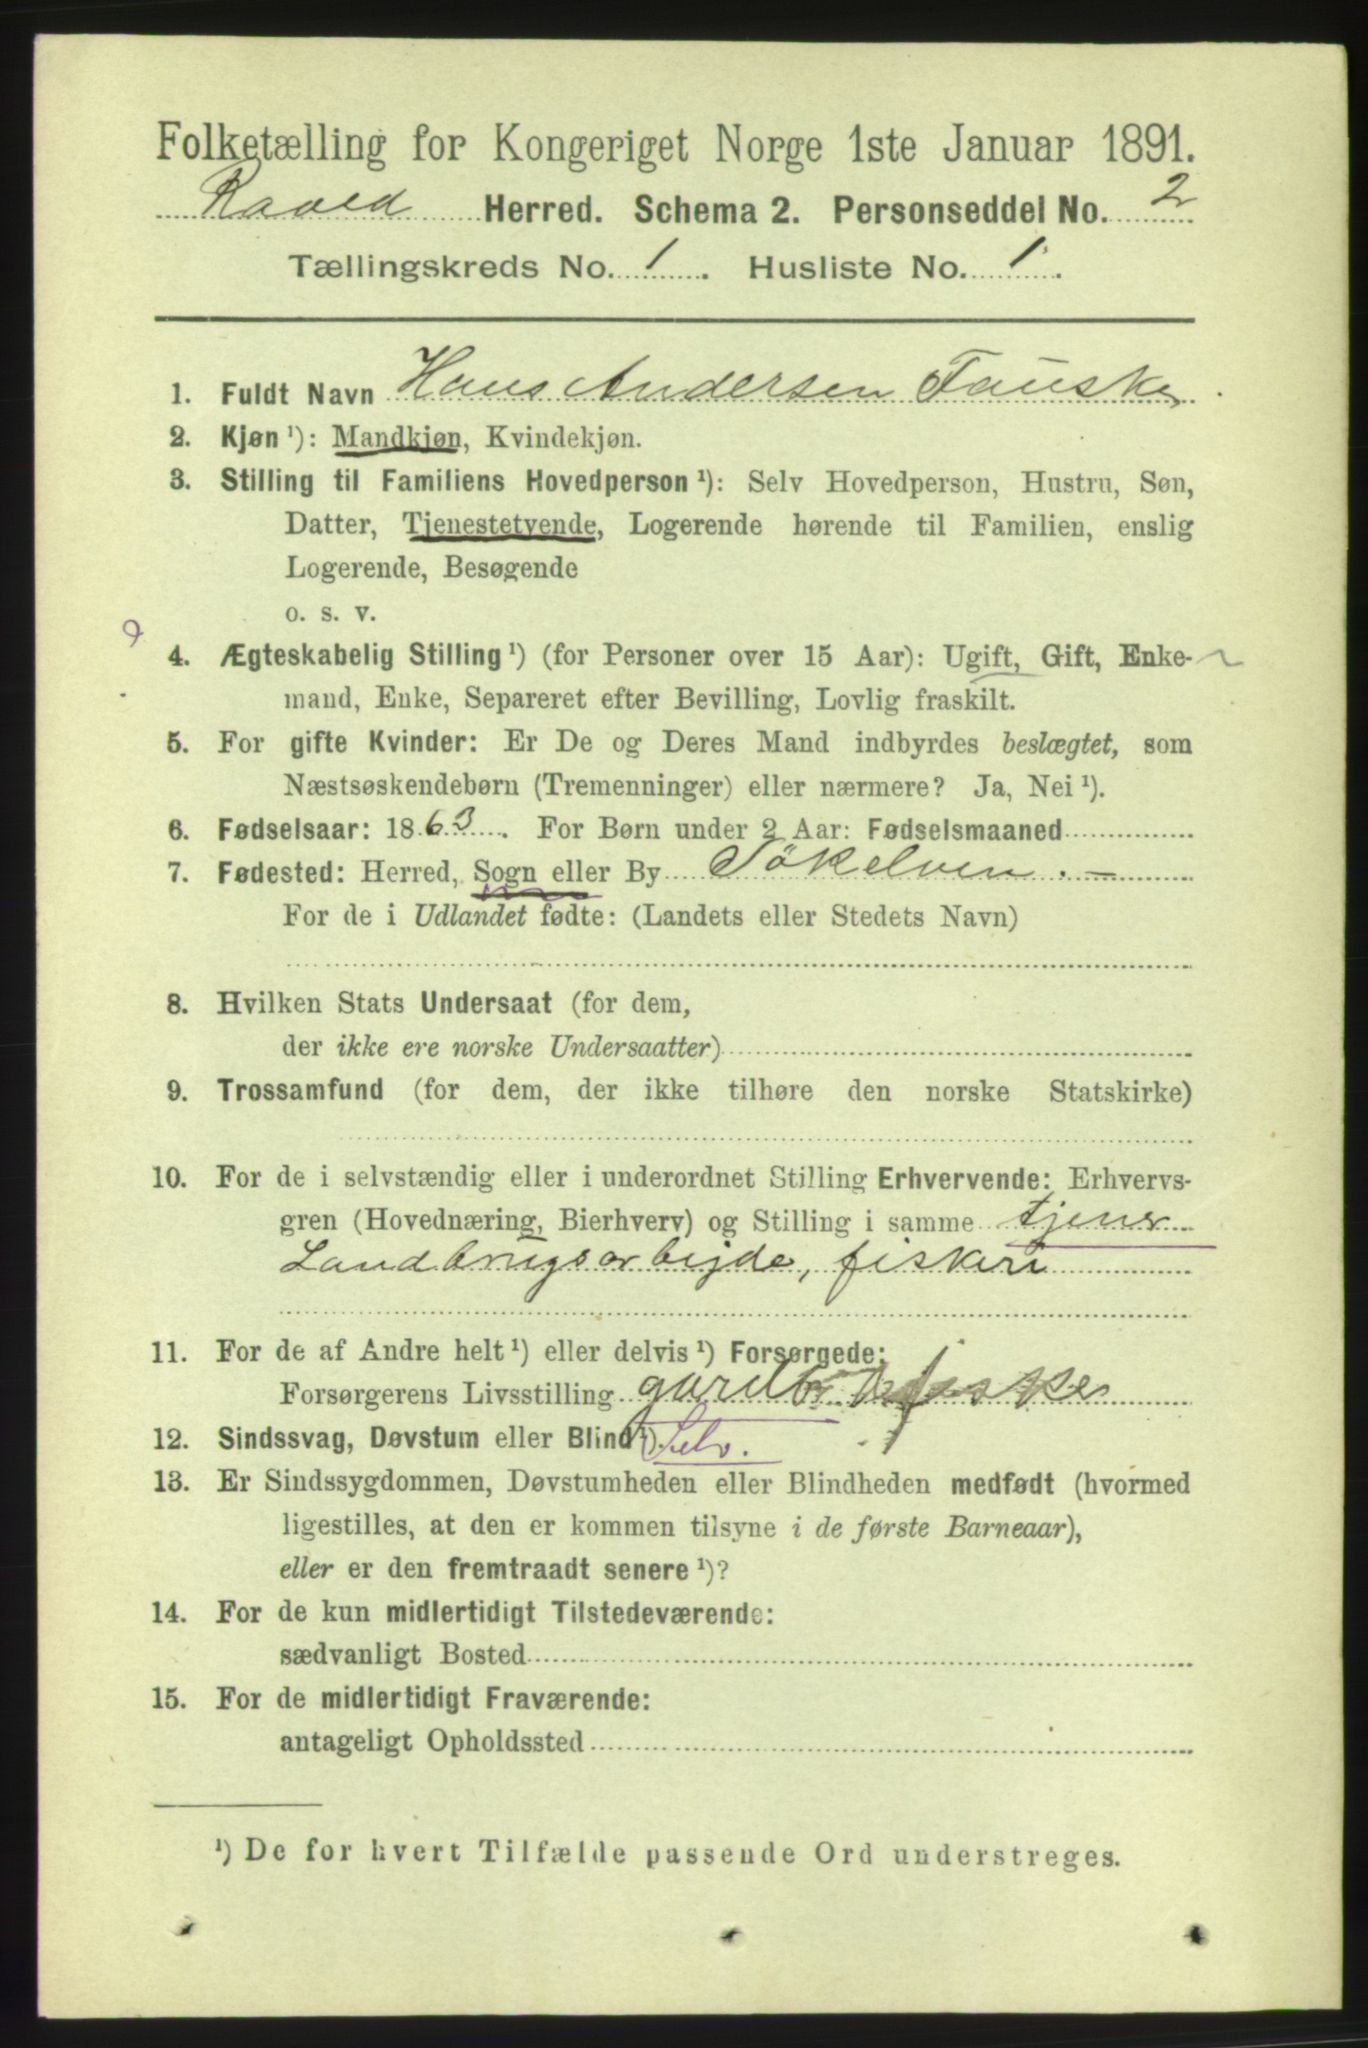 Folketælling for Kongeriget Norge 1ste Januar 1891.
Herred. Schema 2. Personseddel No. 2
Tællingskreds No. 1. Husliste No. 1.
1. Fuldt Navn Hans Andersen Fauske.
2. Kjøn ¹): Mandkjøn, Kvindekjøn.
3. Stilling til Familiens Hovedperson ¹): Selv Hovedperson, Hustru, Søn,
Datter, Tjenestetyende, Logerende hørende til Familien, enslig
Logerende, Besøgende
o. s. v.
4. Ægteskabelig Stilling ¹) (for Personer over 15 Aar): Ugift, Gift, Enke-
mand, Enke, Separeret efter Bevilling, Lovlig fraskilt.
5. For gifte Kvinder: Er De og Deres Mand indbyrdes beslægtet, som
Næstsøskendebørn (Tremenninger) eller nærmere? Ja, Nei ¹).
6. Fødselsaar: 1863. For Børn under 2 Aar: Fødselsmaaned
7. Fødested: Herred, Sogn eller By Søkelven. —
For de i Udlandet fødte: (Landets eller Stedets Navn)
8. Hvilken Stats Undersaat (for dem,
der ikke ere norske Undersaatter)
9. Trossamfund (for dem, der ikke tilhøre den norske Statskirke)
10. For de i selvstændig eller i underordnet Stilling Erhvervende: Erhvervs-
gren (Hovednæring, Bierhverv) og Stilling i samme tjener
Landbrugsarbejde, fiskeri
11. For de af Andre helt ¹) eller delvis ¹) Forsørgede:
Forsørgerens Livsstilling gardbr
12. Sindssvag, Døvstum eller Blind ¹) Selv.
13. Er Sindssygdommen, Døvstumheden eller Blindheden medfødt (hvormed
ligestilles, at den er kommen tilsyne i de første Barneaar),
eller er den fremtraadt senere ¹)?
14. For de kun midlertidigt Tilstedeværende:
sædvanligt Bosted
15. For de midlertidigt Fraværende:
antageligt Opholdssted
¹) De for hvert Tilfælde passende Ord understreges.